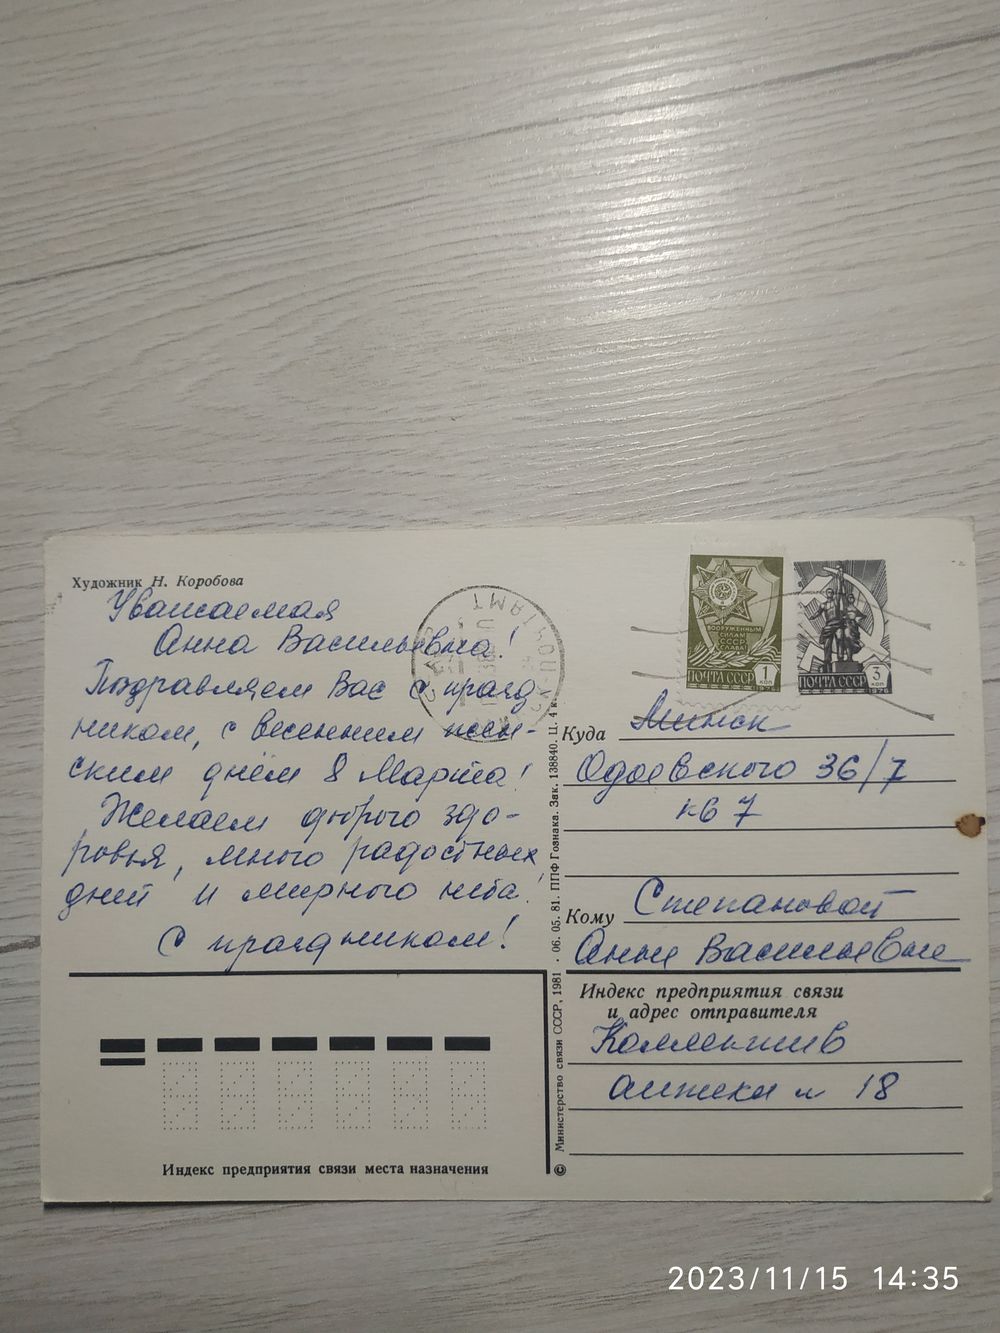 Художник Н. Коробова
Уважаемая
Анна Васильевна!
Поздравляем Вас с празд
ником, с весенним жен-
ским днём 8 Марта!
Желаем доброго здо-
ровья, много радостных
дней и мирного неба!
С праздником!
ВООРУЖЕННЫМ
СИЛАМ
СССР
СЛАВА!
ПОЧТА СССР 1 КОП
ПОЧТА СССР 3 КОП
1976
Куда Минск
Одоевского 36/7
кв 7
Кому Степановой
Анне Васильевне
Индекс предприятия связи
и адрес отправителя
Коллектив
аптеки № 18
Индекс предприятия связи места назначения
© Министерство связи СССР, 1981 · 06. 05. 81. ППФ Гознака. Зак. 138840. Ц. 4 к.
2023/11/15 14:35